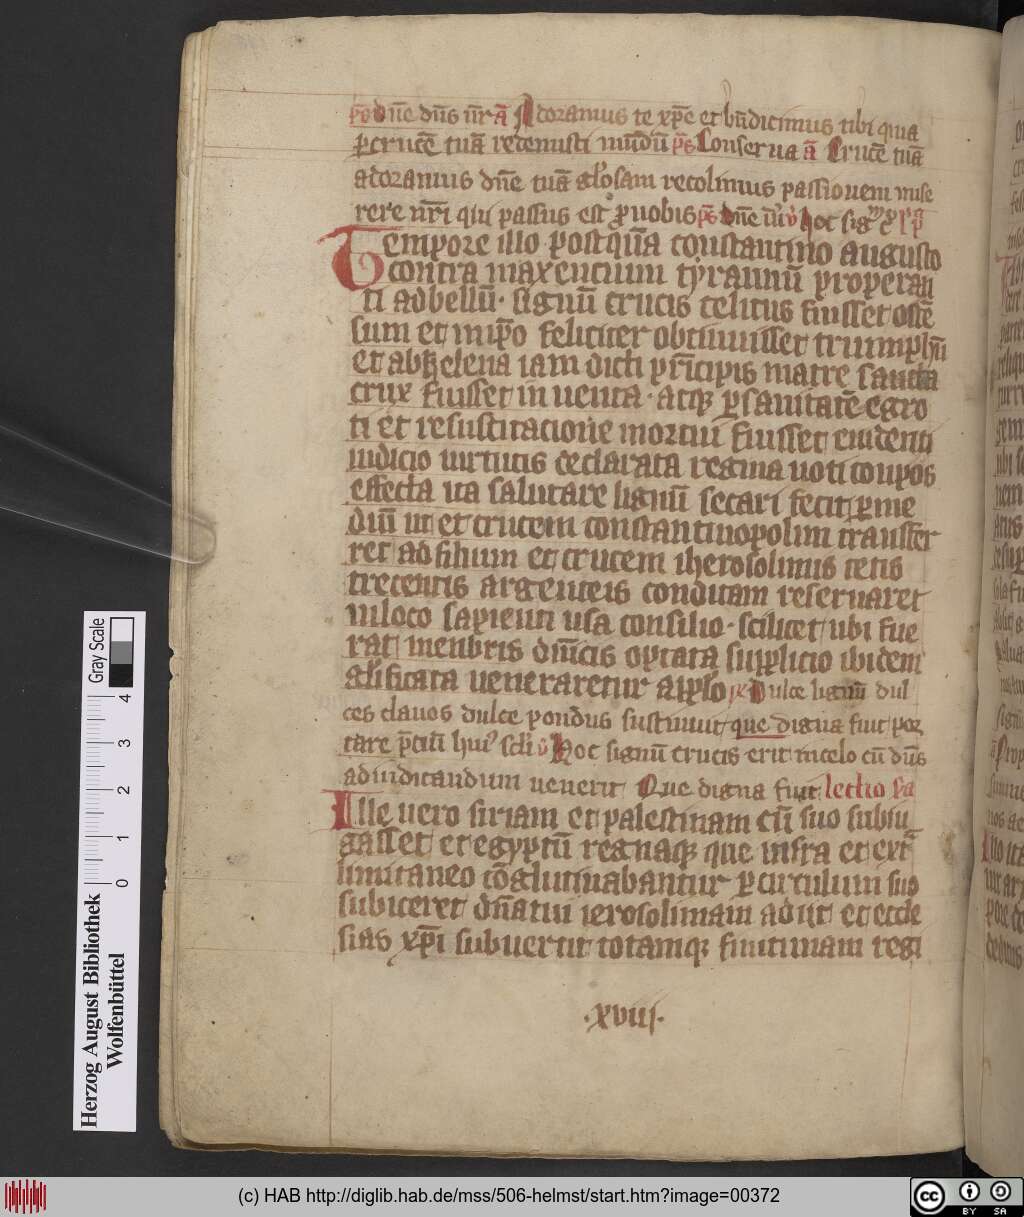 ps dn̄e dn̄s nr̄ ā Adoramus te xp̄e et bn̄dicimus tibi quia
ꝑ crucē tuā redemisti mūdū ps̄ Conserua ā Crucē tuā
adoramus dn̄e tuā gl̓osam recolimus passionem mise
rere nr̄i qui passus est ꝓ nobis ps̄ dn̄e hoc sig
Tempore illo postquā constantino augusto
contra maxencium tyrannū properan
ti ad bellū · signū crucis celitus fuisset ostē
sum et in ip̄o feliciter obtinuisset triumphū
et ab helena iam dicti pr̄icipis matre sancta
crux fuisset in uenta · atqꝫ ꝑ sanitatē egro
ti et resuscitacione mortui fuisset euidenti
iudicio uirtutis declarata regina uoti conpos
effecta ita salutare lignū secari fecit ꝑ me
diū ut et crucem constantinopolim transfer
ret ad filium et crucem iherosolimis tecis
trecentis argenteis conditam reseruaret
in loco sapienti usa consilio · scilicet ubi fue
rat menbris dn̄icis optata supplicio ibidem
gl̓ificata ueneraretur a ipl̓o Dulce lignū dul
ces clauos dulce pondus sustinuit que digna fuit por
tare p̄ciū huiꝰ scl̓i v̓ Hoc signū crucis erit in celo cū dn̄s
ad iudicandum uenerit Que digna fuit lectio s̄a
Ille uero siriam et palestinam cū suo subiu
gasset et egyptū regnaqꝫ que infra et ext̄
limitaneo cōglutinabantur ꝑ circulum suo
subiceret dn̄atui ierosolimam adiit et eccle
sias xp̄i subuertit totamqꝫ finitimam regi
·xviij·
Gray Scale
0 1 2 3 4
Herzog August Bibliothek
Wolfenbüttel
(c) HAB http://diglib.hab.de/mss/506-helmst/start.htm?image=00372
cc BY SA